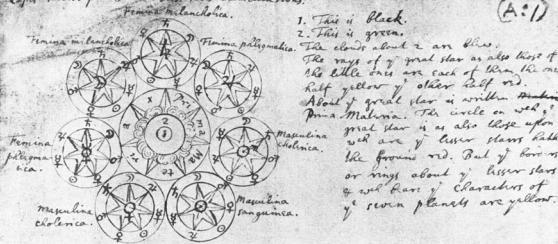 (A:1)
Femina melancholica.
Femina melancholica
Femina phlegmatica.
Femina
phlegma-
tica.
Masculina
cholerica.
Masculina
cholerica.
Masculina
sanguinea.
Prima Materia
2
1
1. This is black.
2. This is green.
The clouds about 2 are blew.
The rays of yᵉ great star as also those of
the little ones are each of them the one
half yellow yᵉ other half red.
About yᵉ great star is written
Prima. Materia. The circle on wᶜʰ yᵉ
great star is as also those upon
wᶜʰ are yᵉ lesser starrs hath
the ground red. But yᵉ borders
or rings about yᵉ lesser starrs
wᶜʰ bear yᵉ characters of
yᵉ seven planets are yellow.